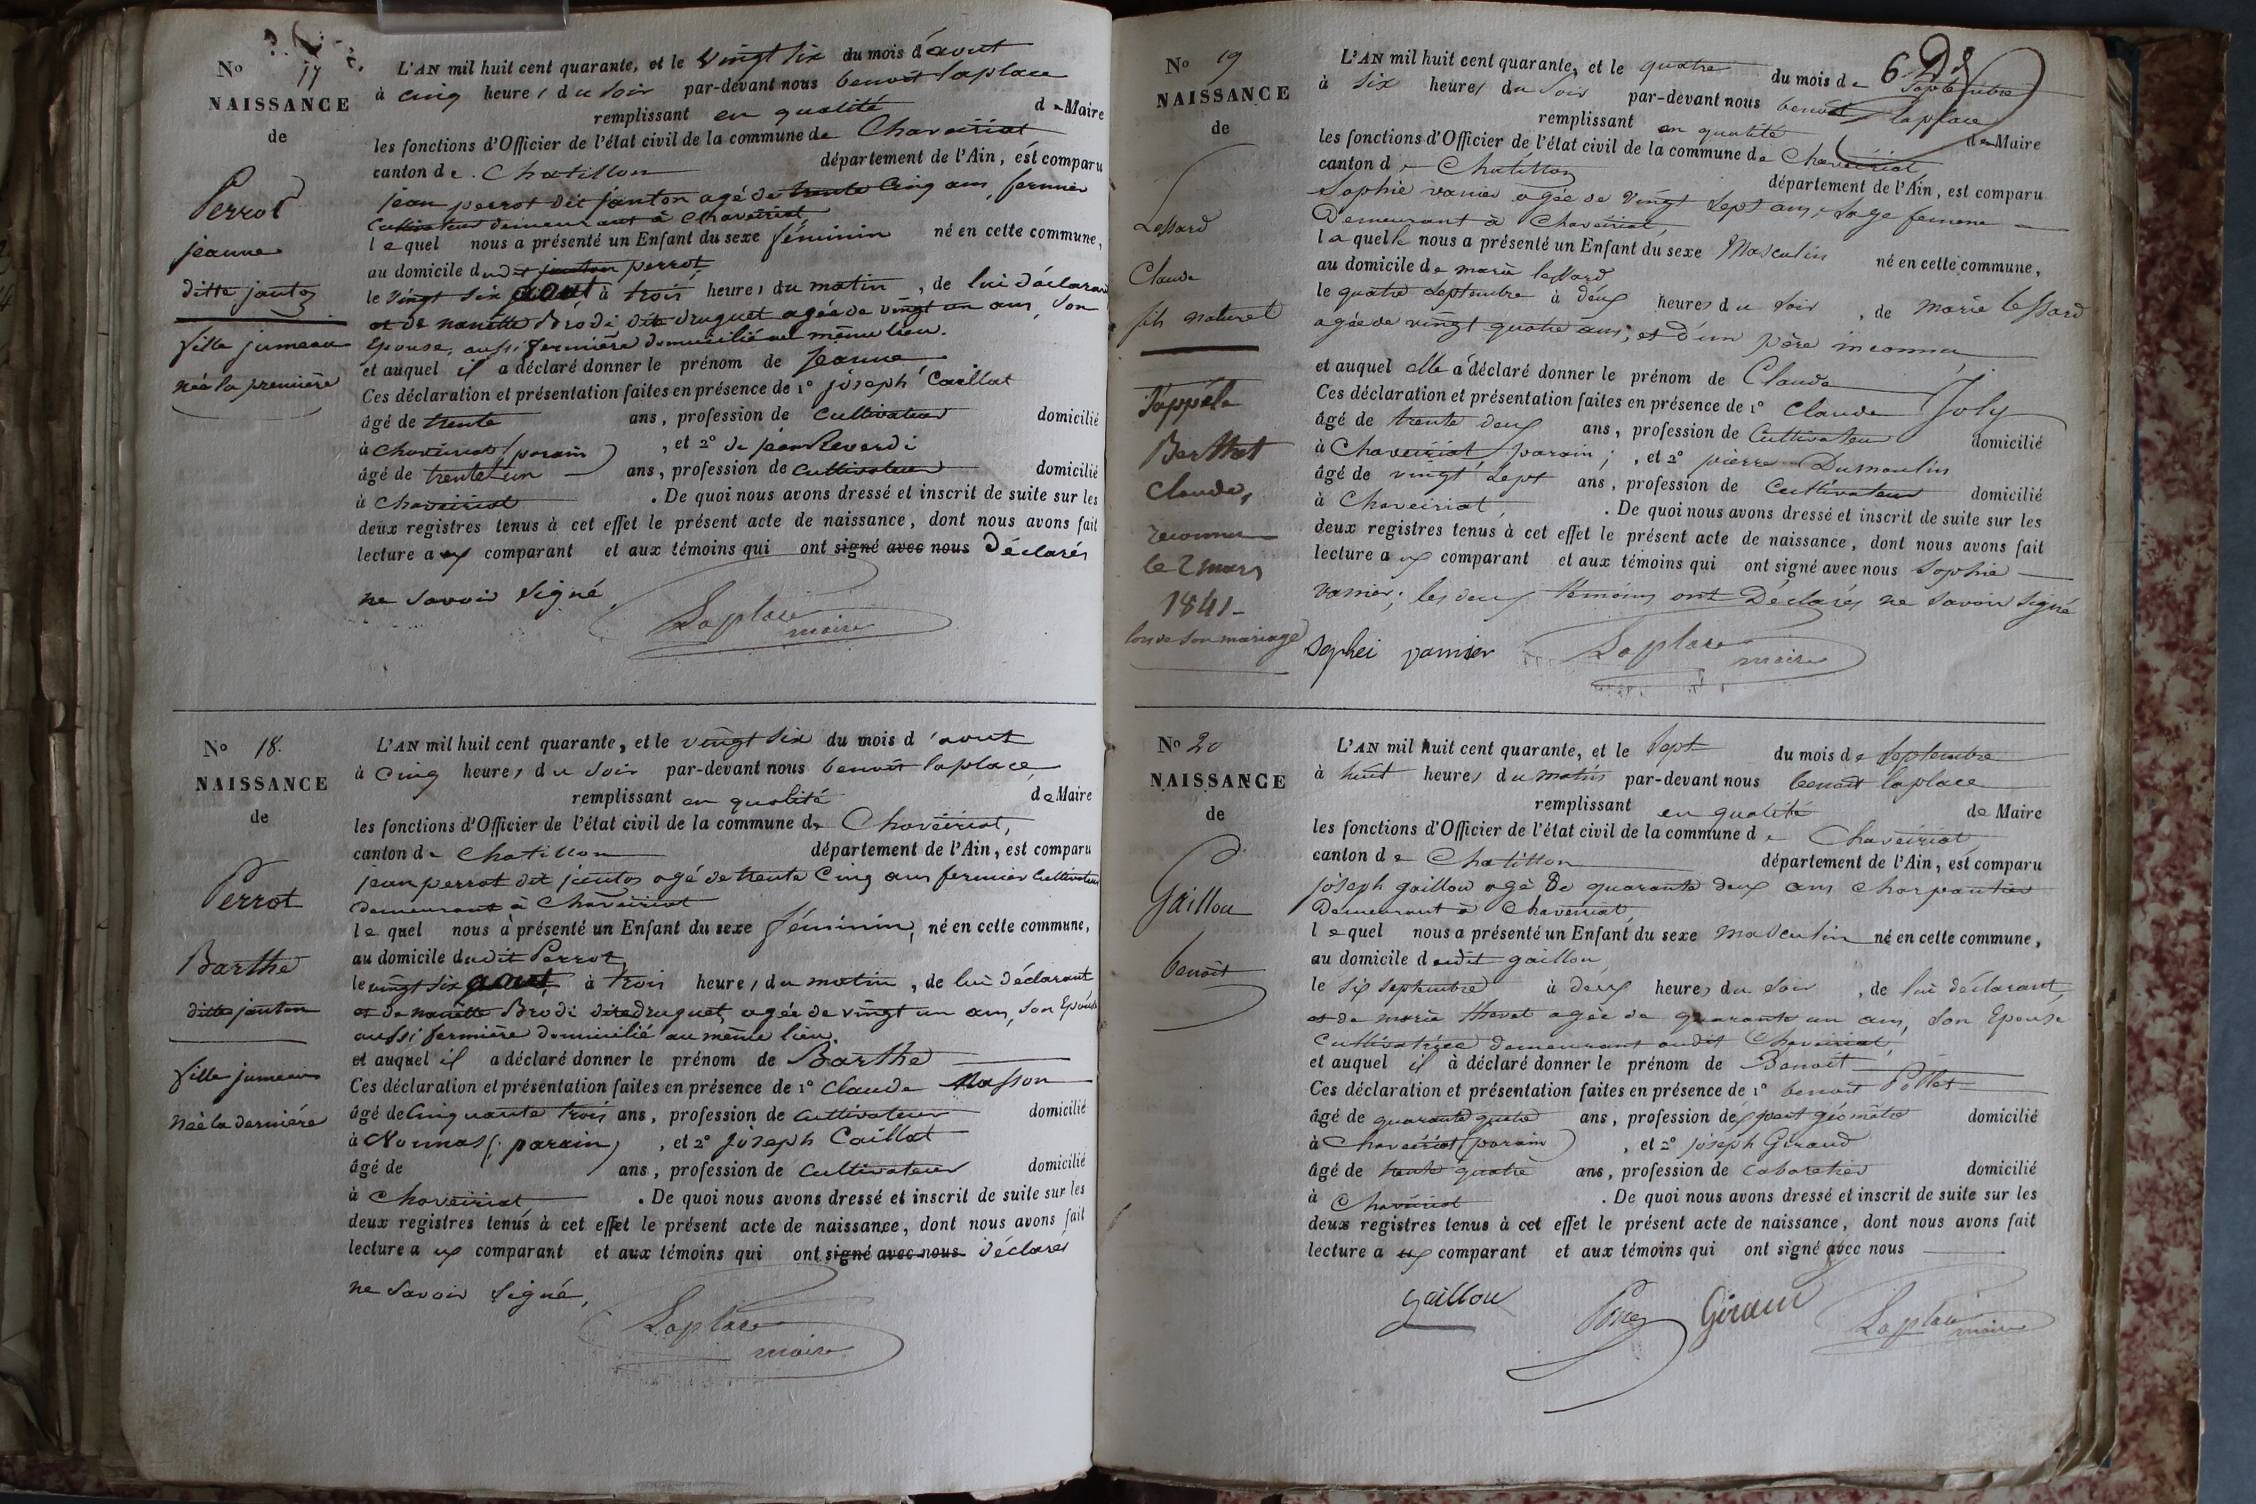 No 17
NAISSANCE
de
Perrot
jeanne
ditte janton
fille jumeau
née la première
L'AN mil huit cent quarante, et le vingt six du mois d'aout
à cinq heures du soir par-devant nous benoit laplace
remplissant en qualité de Maire
les fonctions d'Officier de l'état civil de la commune de Chaveiriat
canton de Chatillon département de l'Ain, est comparu
jean perrot dit janton agé de trente cinq ans, fermier
cultivateur demeurant à Chaveiriat,
lequel nous a présenté un Enfant du sexe féminin né en cette commune,
au domicile dudit janton perrot,
le vingt six aout à trois heures du matin, de lui déclarant
et de nanette Brodi dite druguet agée de vingt un ans, son
Epouse, aussi fermière domicilié au même lieu.
et auquel il a déclaré donner le prénom de Jeanne
Ces déclaration et présentation faites en présence de 1º joseph Caillat
âgé de trente ans, profession de cultivateur domicilié
à chaveiriat (parain) , et 2º de jean Reverdi
âgé de trente un ans, profession de cultivateur domicilié
à Chaveiriat . De quoi nous avons dressé et inscrit de suite sur les
deux registres tenus à cet effet le présent acte de naissance, dont nous avons fait
lecture aux comparant et aux témoins qui ont signé avec nous Déclarés
ne savoir signé
Laplace
maire
No 18.
NAISSANCE
de
Perrot
Barthe
ditte janton
fille jumeau
née la dernière
L'AN mil huit cent quarante, et le vingt six du mois d'aout
à cinq heures du soir par-devant nous benoit laplace,
remplissant en qualité de Maire
les fonctions d'Officier de l'état civil de la commune de Chaveiriat,
canton de Chatillon département de l'Ain, est comparu
jean perrot dit janton agé de trente cinq ans fermier cultivateur
demeurant à Chaveiriat
lequel nous a présenté un Enfant du sexe féminin, né en cette commune,
au domicile dudit Perrot
le vingt six aout, à trois heures du matin, de lui déclarant
et de nanette Brodi dite druguet, agée de vingt un ans, son Epouse
aussi fermière domicilié au même lieu.
et auquel il a déclaré donner le prénom de Barthe
Ces déclaration et présentation faites en présence de 1º Claude Masson
âgé de Cinquante trois ans, profession de cultivateur domicilié
à Neuville (parain) , et 2º joseph Caillat
âgé de ans, profession de cultivateur domicilié
à Chaveiriat, . De quoi nous avons dressé et inscrit de suite sur les
deux registres tenus à cet effet le présent acte de naissance, dont nous avons fait
lecture aux comparant et aux témoins qui ont signé avec nous déclarés
ne savoir signé,
Laplace
maire
No 19
NAISSANCE
de
Lessard
Claude
fils naturel
S'appéle
Berthet
Claude,
reconnu
le 2 mars
1841-
lors de son mariage
6 Dd
L'AN mil huit cent quarante, et le quatre du mois de Septembre
à six heures du soir par-devant nous benoit laplace
remplissant en qualité de Maire
les fonctions d'Officier de l'état civil de la commune de Chaveiriat
canton de Chatillon département de l'Ain, est comparu
Sophie vanier agée de vingt sept ans, sage femme
Demeurant à Chaveiriat,
laquelle nous a présenté un Enfant du sexe Masculin né en cette commune,
au domicile de marie lessard
le quatre septembre à deux heures du soir , de marie lessard
agée de vingt quatre ans, et d'un père inconnu,
et auquel elle a déclaré donner le prénom de Claude
Ces déclaration et présentation faites en présence de 1º Claude Joly
âgé de trente deux ans, profession de Cultivateur domicilié
à Chaveiriat, parain; , et 2º pierre Dumoulin
âgé de vingt sept ans, profession de Cultivateur domicilié
à Chaveiriat, . De quoi nous avons dressé et inscrit de suite sur les
deux registres tenus à cet effet le présent acte de naissance, dont nous avons fait
lecture aux comparant et aux témoins qui ont signé avec nous sophie
vanier; les deux témoins ont Déclarés ne savoir signé
Sophei vanier
Laplace
maire
No 20
NAISSANCE
de
Gaillou
benoit
L'AN mil huit cent quarante, et le sept du mois de septembre
à huit heures du matin par-devant nous benoit laplace
remplissant en qualité de Maire
les fonctions d'Officier de l'état civil de la commune de Chaveiriat
canton de Chatillon département de l'Ain, est comparu
joseph gaillou agé de quarante deux ans charpantier
Demeurant à Chaveiriat,
lequel nous a présenté un Enfant du sexe masculin né en cette commune,
au domicile dudit gaillou,
le six septembre à deux heures du soir , de lui déclarant,
et de marie thevet agée de quarante un ans, son Epouse
Cultivatrice demeurant audit Chaveiriat,
et auquel il à déclaré donner le prénom de Benoit
Ces déclaration et présentation faites en présence de 1º benoit
âgé de quarante quatre ans, profession de géomètre domicilié
à Chaveiriat (parain) , et 2º joseph Giraud
âgé de trente quatre ans, profession de cabaretier domicilié
à Chaveiriat . De quoi nous avons dressé et inscrit de suite sur les
deux registres tenus à cet effet le présent acte de naissance, dont nous avons fait
lecture aux comparant et aux témoins qui ont signé avec nous
gaillou
Giraud
Laplace
maire